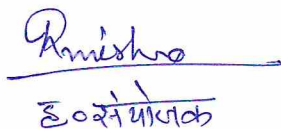 Rmishra
ह० संयोजक